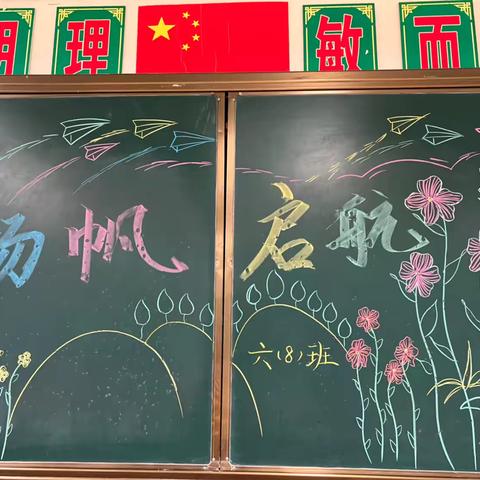 理 敏 而
扬帆启航
六(8)班